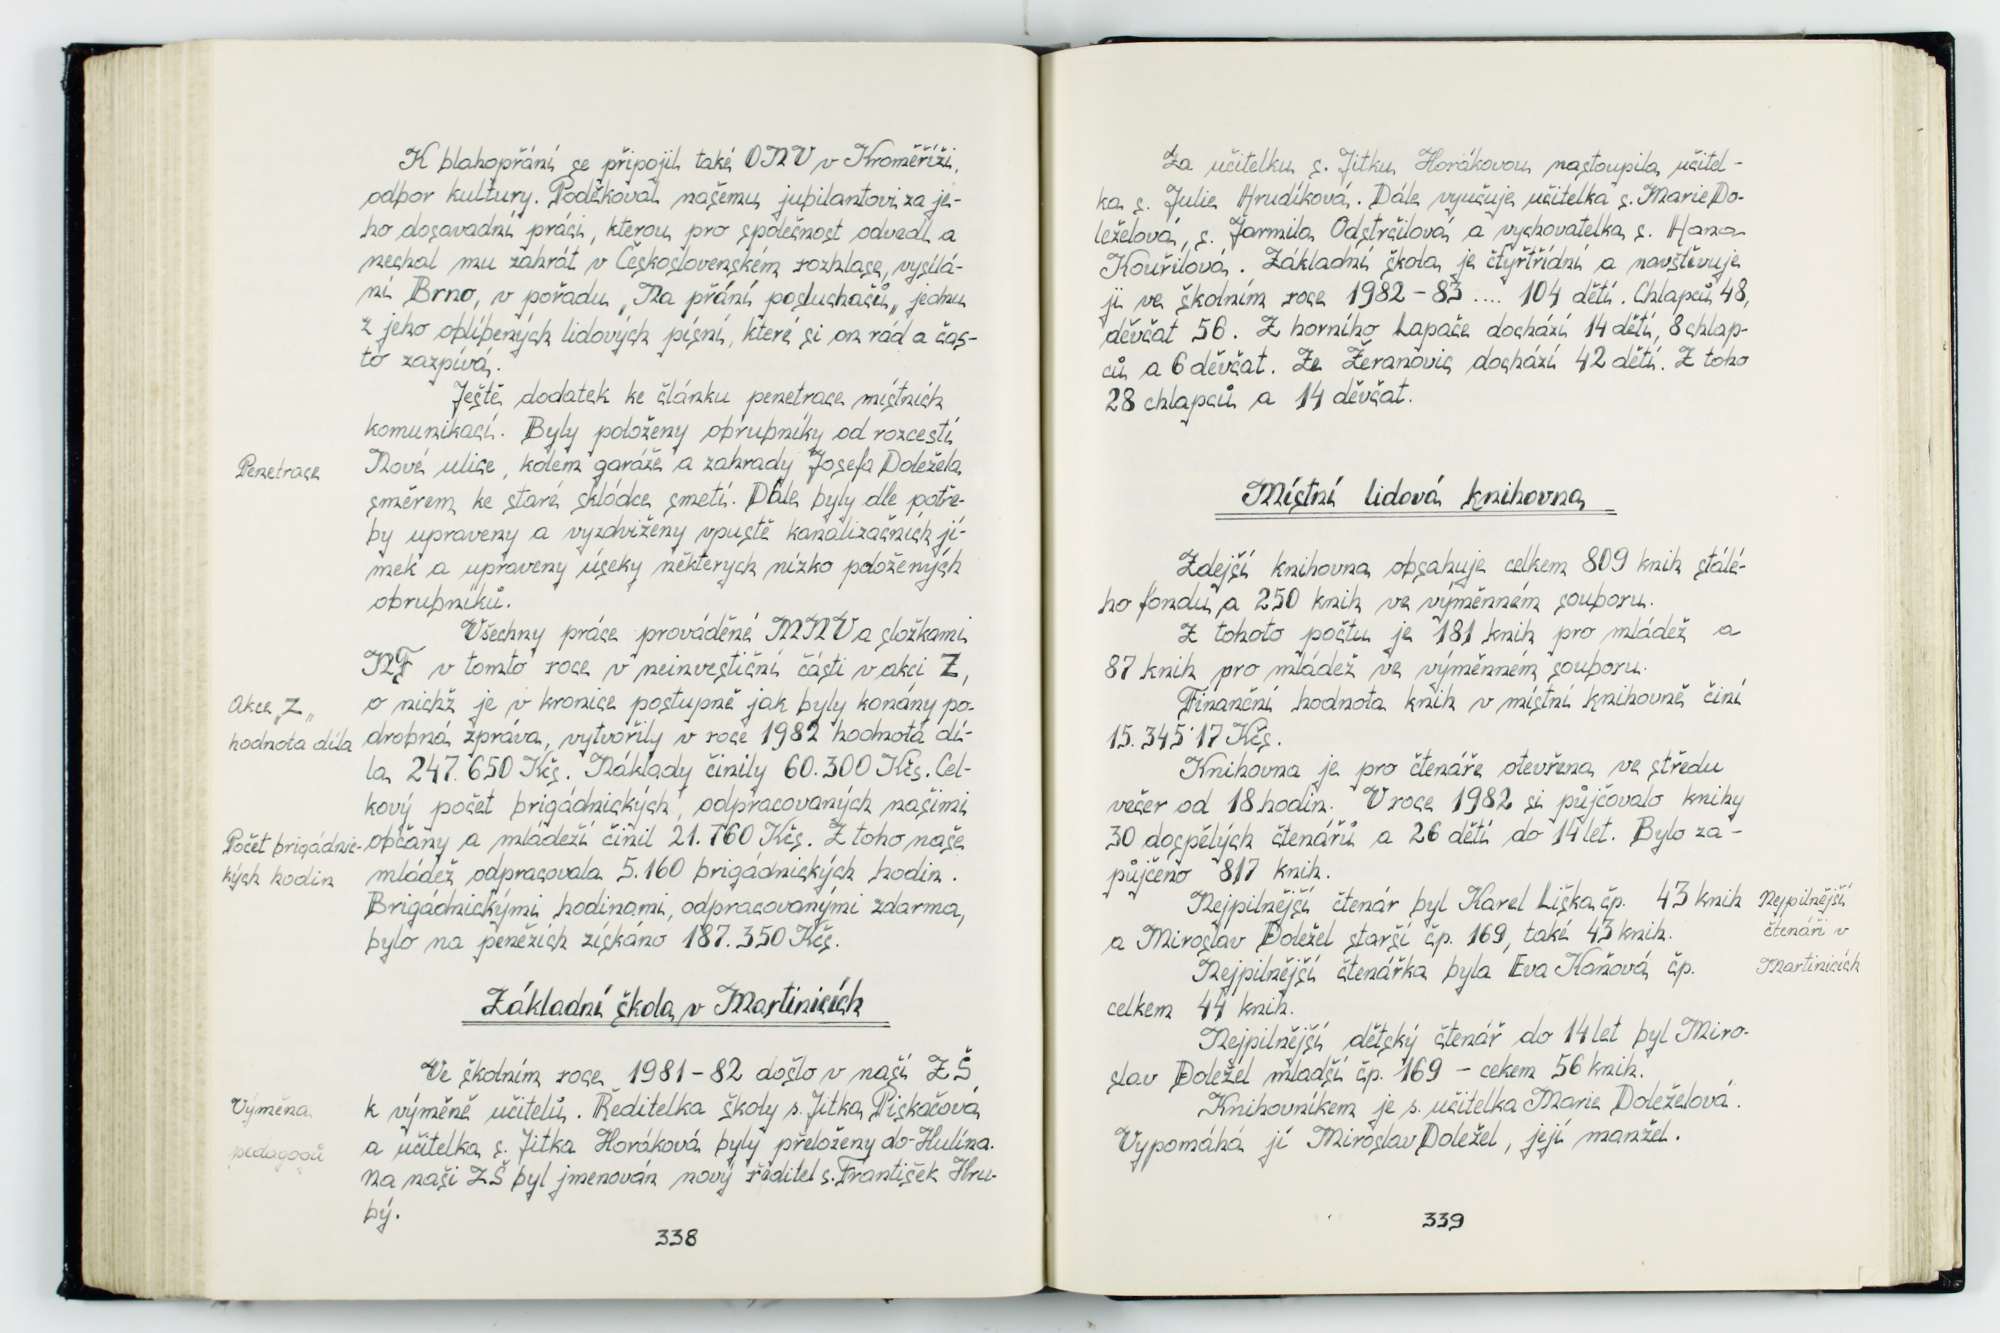 K blahopřání se připojil také ONV v Kroměříži,
odbor kultury. Poděkoval našemu jubilantovi za je-
ho dosavadní práci, kterou pro společnost odvedl a
nechal mu zahrát v Československém rozhlase, vysílá-
ní Brno, v pořadu „Na přání posluchačů„ jednu
z jeho oblíbených lidových písní, které si on rád a čas-
to zazpívá.
Ještě dodatek ke článku penetrace místních
komunikací. Byly položeny obrubníky od rozcestí
Penetrace
Nové ulice, kolem garáže a zahrady Josefa Doležela
směrem ke staré skládce smetí. Dále byly dle potře-
by upraveny a vyzdviženy vpustě kanalizačních jí-
mek a upraveny úseky některých nízko položených
obrubníků.
Všechny práce prováděné MNV a složkami
NF v tomto roce v neinvestiční části v akci Z,
Akce „Z„
o nichž je v kronice postupně jak byly konány po-
hodnota díla
drobná zpráva, vytvořily v roce 1982 hodnotu dí-
la 247.650 Kčs. Náklady činily 60.300 Kčs. Cel-
kový počet brigádnických, odpracovaných našimi
Počet brigádnic-
občany a mládeží činil 21.760 Kčs. Z toho naše
kých hodin
mládež odpracovala 5.160 brigádnických hodin.
Brigádnickými hodinami, odpracovanými zdarma,
bylo na penězích získáno 187.350 Kčs.
Základní škola v Martinicích
Ve školním roce 1981-82 došlo v naší ZŠ
Výměna
k výměně učitelů. Ředitelka školy s. Jitka Piskačová
pedagogů
a učitelka s. Jitka Horáková byly přeloženy do Hulína.
Na naši ZŠ byl jmenován nový ředitel s. František Hru-
bý.
338
Za učitelku s. Jitku Horákovou nastoupila učitel-
ka s. Julie Hrudíková. Dále vyučuje učitelka s. Marie Do-
leželová, s. Jarmila Odstrčilová a vychovatelka s. Hana
Kouřilová. Základní škola je čtyřtřídní a navštěvuje
ji ve školním roce 1982-83 .... 104 dětí. Chlapců 48,
děvčat 56. Z horního Lapače dochází 14 dětí, 8 chlap-
ců a 6 děvčat. Ze Žeranovic dochází 42 dětí. Z toho
28 chlapců a 14 děvčat.
Místní lidová knihovna
Zdejší knihovna obsahuje celkem 809 knih stálé-
ho fondu a 250 knih ve výměnném souboru.
Z tohoto počtu je 181 knih pro mládež a
87 knih pro mládež ve výměnném souboru.
Finanční hodnota knih v místní knihovně činí
15.345˙17 Kčs.
Knihovna je pro čtenáře otevřena ve středu
večer od 18 hodin. V roce 1982 si půjčovalo knihy
30 dospělých čtenářů a 26 dětí do 14 let. Bylo za-
půjčeno 817 knih.
Nejpilnější čtenár byl Karel Liška čp. 43 knih
a Miroslav Doležel starší čp. 169, také 43 knih.
Nejpilnější
čtenáři v
Martinicích
Nejpilnější čtenářka byla Eva Kaňová čp.
celkem 44 knih.
Nejpilnější dětský čtenář do 14 let byl Miro-
slav Doležel mladší čp. 169 - cekem 56 knih.
Knihovníkem je s. učitelka Marie Doleželová.
Vypomáhá jí Miroslav Doležel, její manžel.
339